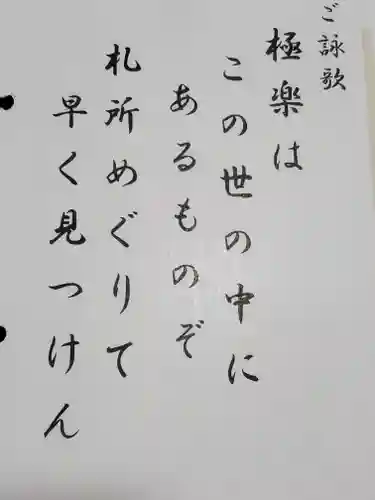 ご詠歌
極楽は
この世の中に
あるものぞ
札所めぐりて
早く見つけん